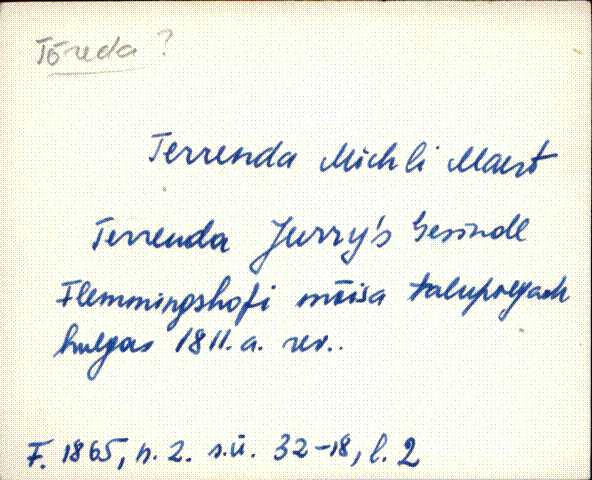 Tõreda ?
Terrenda Michli Maert
Terrenda Jurry's Gesinde
Flemmingshofi mõisa talupoegade
hulgas 1811. a. rev..
F. 1865, n. 2. s.ü. 32-18, l. 2